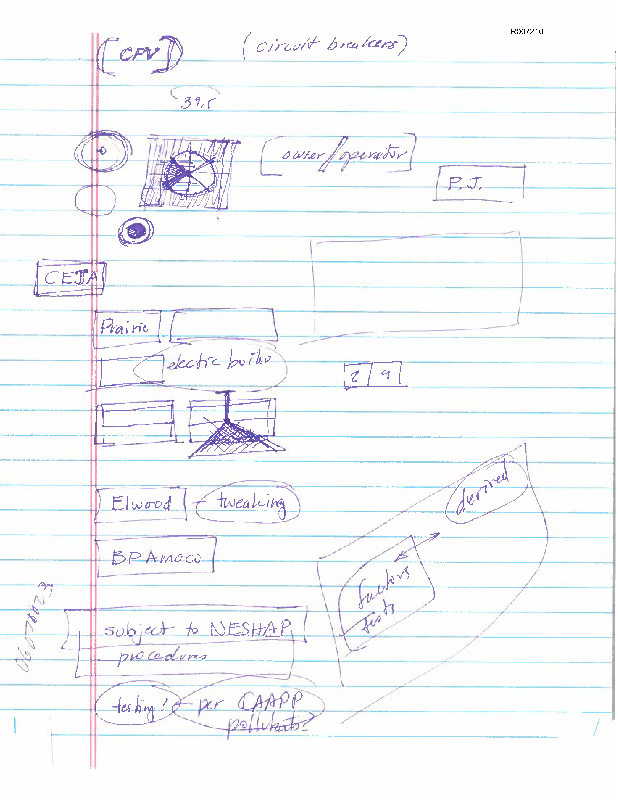 R007210
[CPV] (circuit breakers)
39.5
[owner/operator]
P.J.
CEJA
Prairie
electric boiler
2 9
derived
Elwood - tweaking
BPAmoco
factors
tests
06070023
subject to NESHAP
procedures
testing? per CAAPP
pollutants?